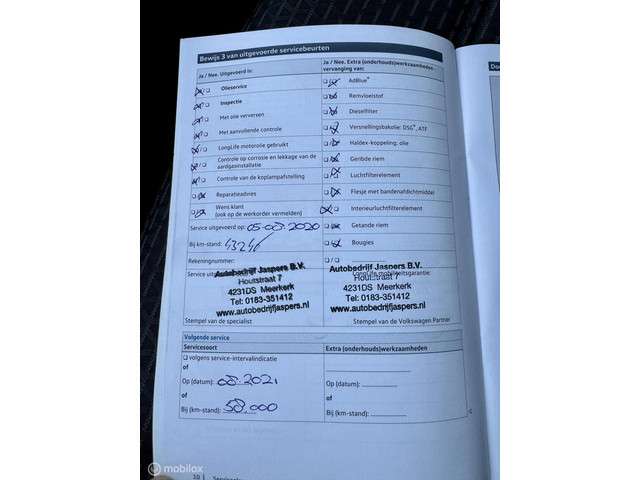 Bewijs 3 van uitgevoerde servicebeurten
Ja / Nee. Uitgevoerd is:
Olieservice
Inspectie
Met olie verversen
Met aanvullende controle
LongLife motorolie gebruikt
Controle op corrosie en lekkage van de
aardgasinstallatie
Controle van de koplampafstelling
Reparatieadvies
Wens klant
(ook op de werkorder vermelden)
Service uitgevoerd op: 05-08-2020
Bij km-stand: 43246
Rekeningnummer:
Service
Autobedrijf Jaspers B.V.
Houtstraat 7
4231DS Meerkerk
Tel: 0183-351412
www.autobedrijfjaspers.nl
Stempel van de specialist
Ja / Nee. Extra (onderhouds)werkzaamheden
vervanging van:
AdBlue®
Remvloeistof
Dieselfilter
Versnellingsbakolie: DSG®, ATF
Haldex-koppeling: olie
Geribde riem
Luchtfilterelement
Flesje met bandenafdichtmiddel
Interieurluchtfilterelement
Getande riem
Bougies
/
LongLife mobiliteitsgarantie:
Autobedrijf Jaspers B.V.
Houtstraat 7
4231DS Meerkerk
Tel: 0183-351412
www.autobedrijfjaspers.nl
Stempel van de Volkswagen Partner
Volgende service
Servicesoort
volgens service-intervalindicatie
of
Op (datum): 08-2021
of
Bij (km-stand): 58.000
Extra (onderhouds)werkzaamheden
of
Op (datum):
of
Bij (km-stand):
30
mobilox